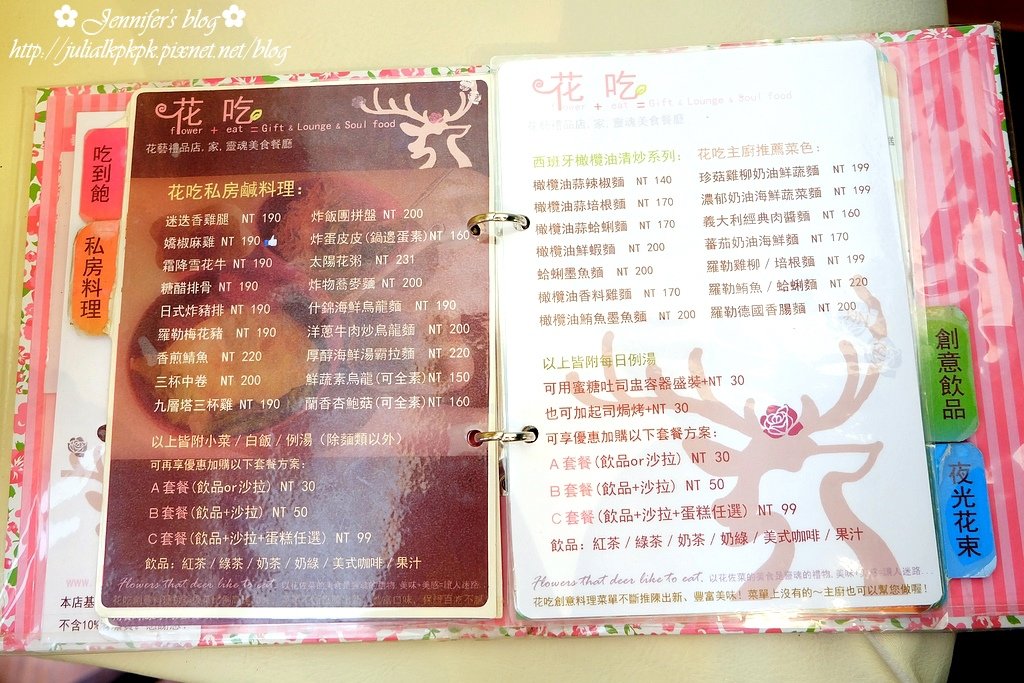 ✿ Jennifer's blog ✿
http://julialkpkpk.pixnet.net/blog
吃到飽
私房料理
花 吃
flower + eat = Gift & Lounge & Soul food
花藝禮品店.家.靈魂美食餐廳
花吃私房鹹料理：
迷迭香雞腿 NT 190
嬌椒麻雞 NT 190
霜降雪花牛 NT 190
糖醋排骨 NT 190
日式炸豬排 NT 190
羅勒梅花豬 NT 190
香煎鯖魚 NT 220
三杯中卷 NT 200
九層塔三杯雞 NT 190
炸飯團拼盤 NT 200
炸蛋皮皮(鍋邊蛋素)NT 160
太陽花粥 NT 231
炸物蕎麥麵 NT 200
什錦海鮮烏龍麵 NT 190
洋蔥牛肉炒烏龍麵 NT 200
厚醇海鮮湯霸拉麵 NT 220
鮮蔬素烏龍(可全素)NT 150
蘭香杏鮑菇(可全素)NT 160
以上皆附小菜/白飯/例湯（除麵類以外）
可再享優惠加購以下套餐方案：
A套餐(飲品or沙拉) NT 30
B套餐(飲品+沙拉) NT 50
C套餐(飲品+沙拉+蛋糕任選) NT 99
飲品：紅茶/綠茶/奶茶/奶綠/美式咖啡/果汁
Flowers that deer like to eat.
www.
本店基
不含10%
花 吃
flower + eat = Gift & Lounge & Soul food
花藝禮品店.家.靈魂美食餐廳
西班牙橄欖油清炒系列：
橄欖油蒜辣椒麵 NT 140
橄欖油蒜培根麵 NT 170
橄欖油蒜蛤蜊麵 NT 170
橄欖油鮮蝦麵 NT 200
蛤蜊墨魚麵 NT 200
橄欖油香料雞麵 NT 170
橄欖油鮪魚墨魚麵 NT 200
花吃主廚推薦菜色：
珍菇雞柳奶油鮮蔬麵 NT 199
濃郁奶油海鮮蔬菜麵 NT 199
義大利經典肉醬麵 NT 160
蕃茄奶油海鮮麵 NT 170
羅勒雞柳/培根麵 NT 199
羅勒鮪魚/蛤蜊麵 NT 220
羅勒德國香腸麵 NT 200
以上皆附每日例湯
可用蜜糖吐司盅容器盛裝+NT 30
也可加起司焗烤+NT 30
可享優惠加購以下套餐方案：
A套餐(飲品or沙拉) NT 30
B套餐(飲品+沙拉) NT 50
C套餐(飲品+沙拉+蛋糕任選) NT 99
飲品：紅茶/綠茶/奶茶/奶綠/美式咖啡/果汁
Flowers that deer like to eat. 以花佐菜的美食是靈魂的禮物.美味+美感=讓人迷路...
花吃創意料理菜單不斷推陳出新、豐富美味！菜單上沒有的～主廚也可以幫您做喔！
創意飲品
夜光花束